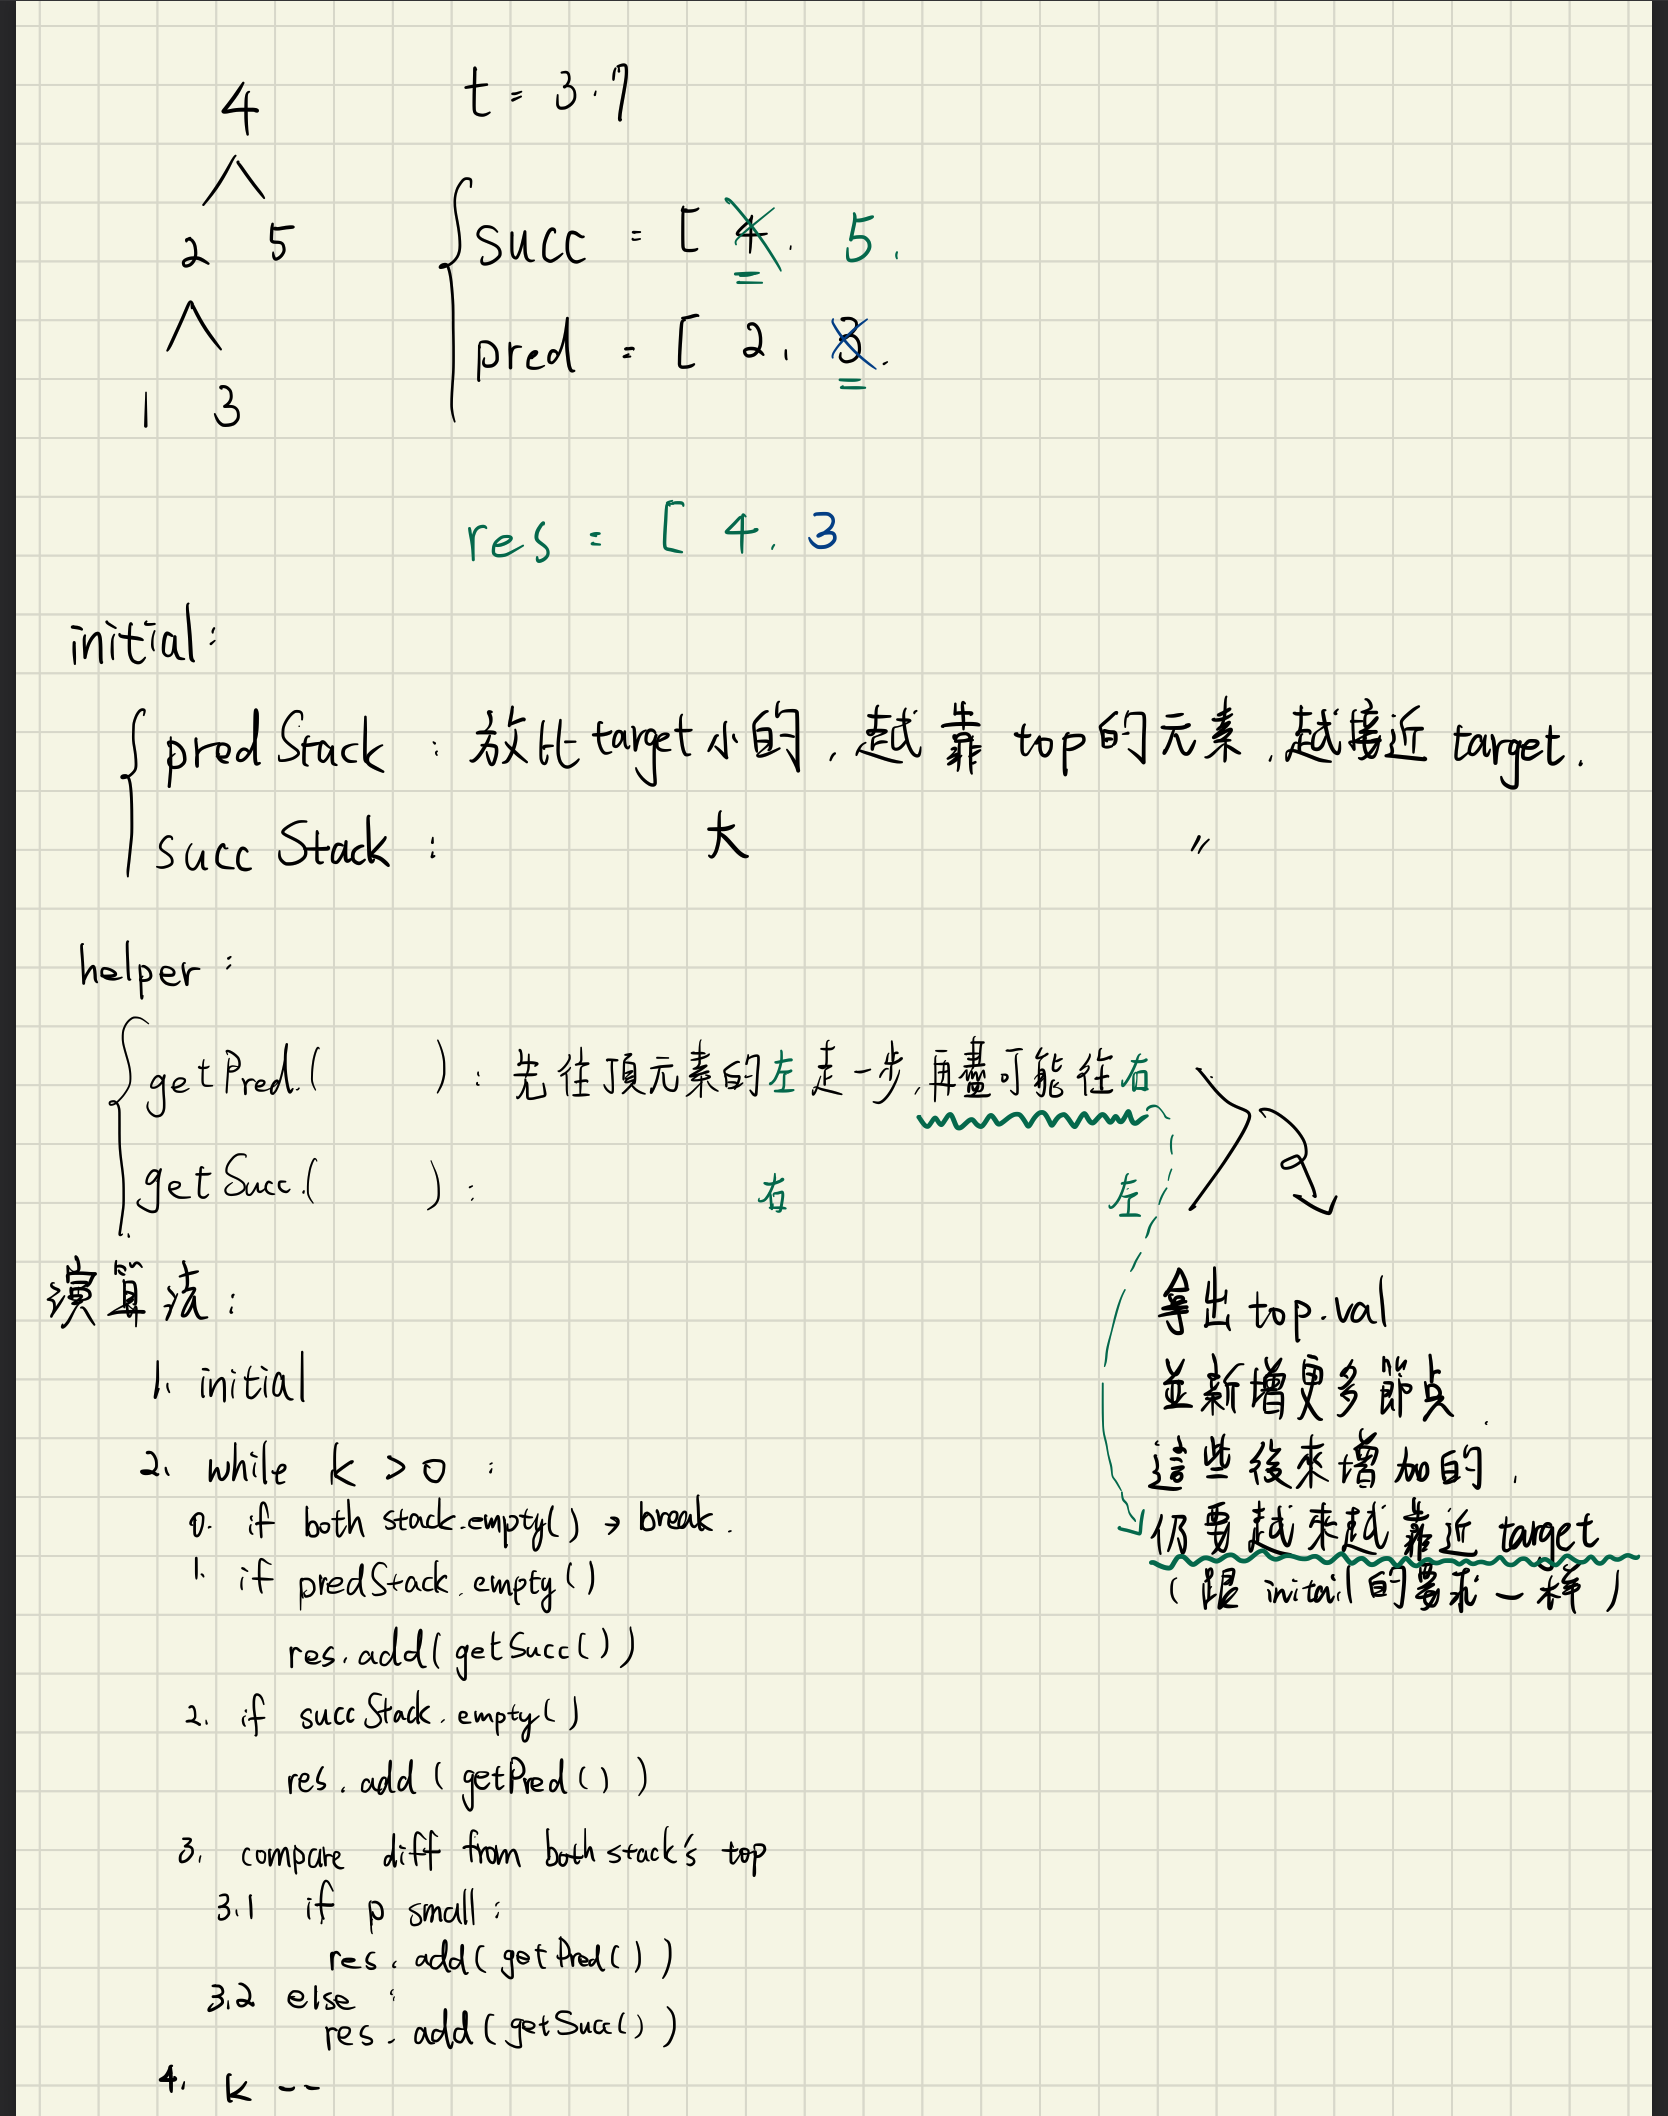 4
2 5
1 3
t = 3.7
succ = [ 4. 5.
pred = [ 2. 3.
res = [ 4. 3
initial:
predStack : 放比target小的, 越靠top的元素, 越接近target.
succStack : 大 〃
helper:
getPred.( ) : 先往頂元素的左走一步, 再盡可能往右
getSucc.( ) : 右 左
拿出top.val
並新增更多節点.
這些後來增加的,
仍要越來越靠近target
(跟initail的要求一样)
演算法:
1. initial
2. while k > 0 :
0. if both stack.empty() → break.
1. if predStack.empty()
res.add(getSucc())
2. if succStack.empty()
res.add(getPred())
3. compare diff from both stack's top
3.1 if p small:
res.add(getPred())
3.2 else:
res.add(getSucc())
4. k --